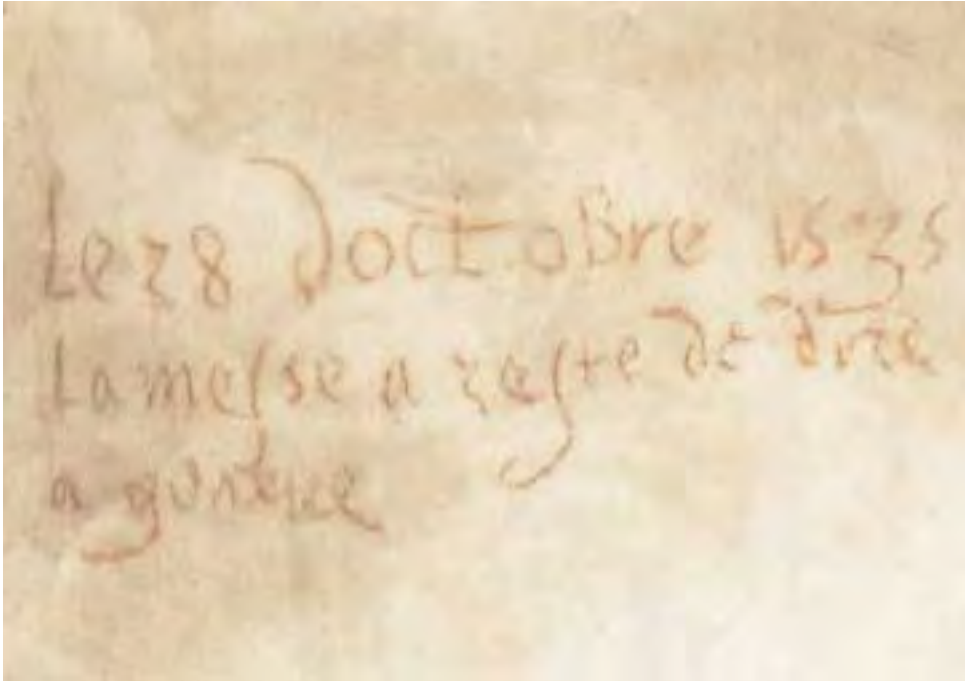 Le 28 doctobre 1535
La messe a reste de dire
a geneve